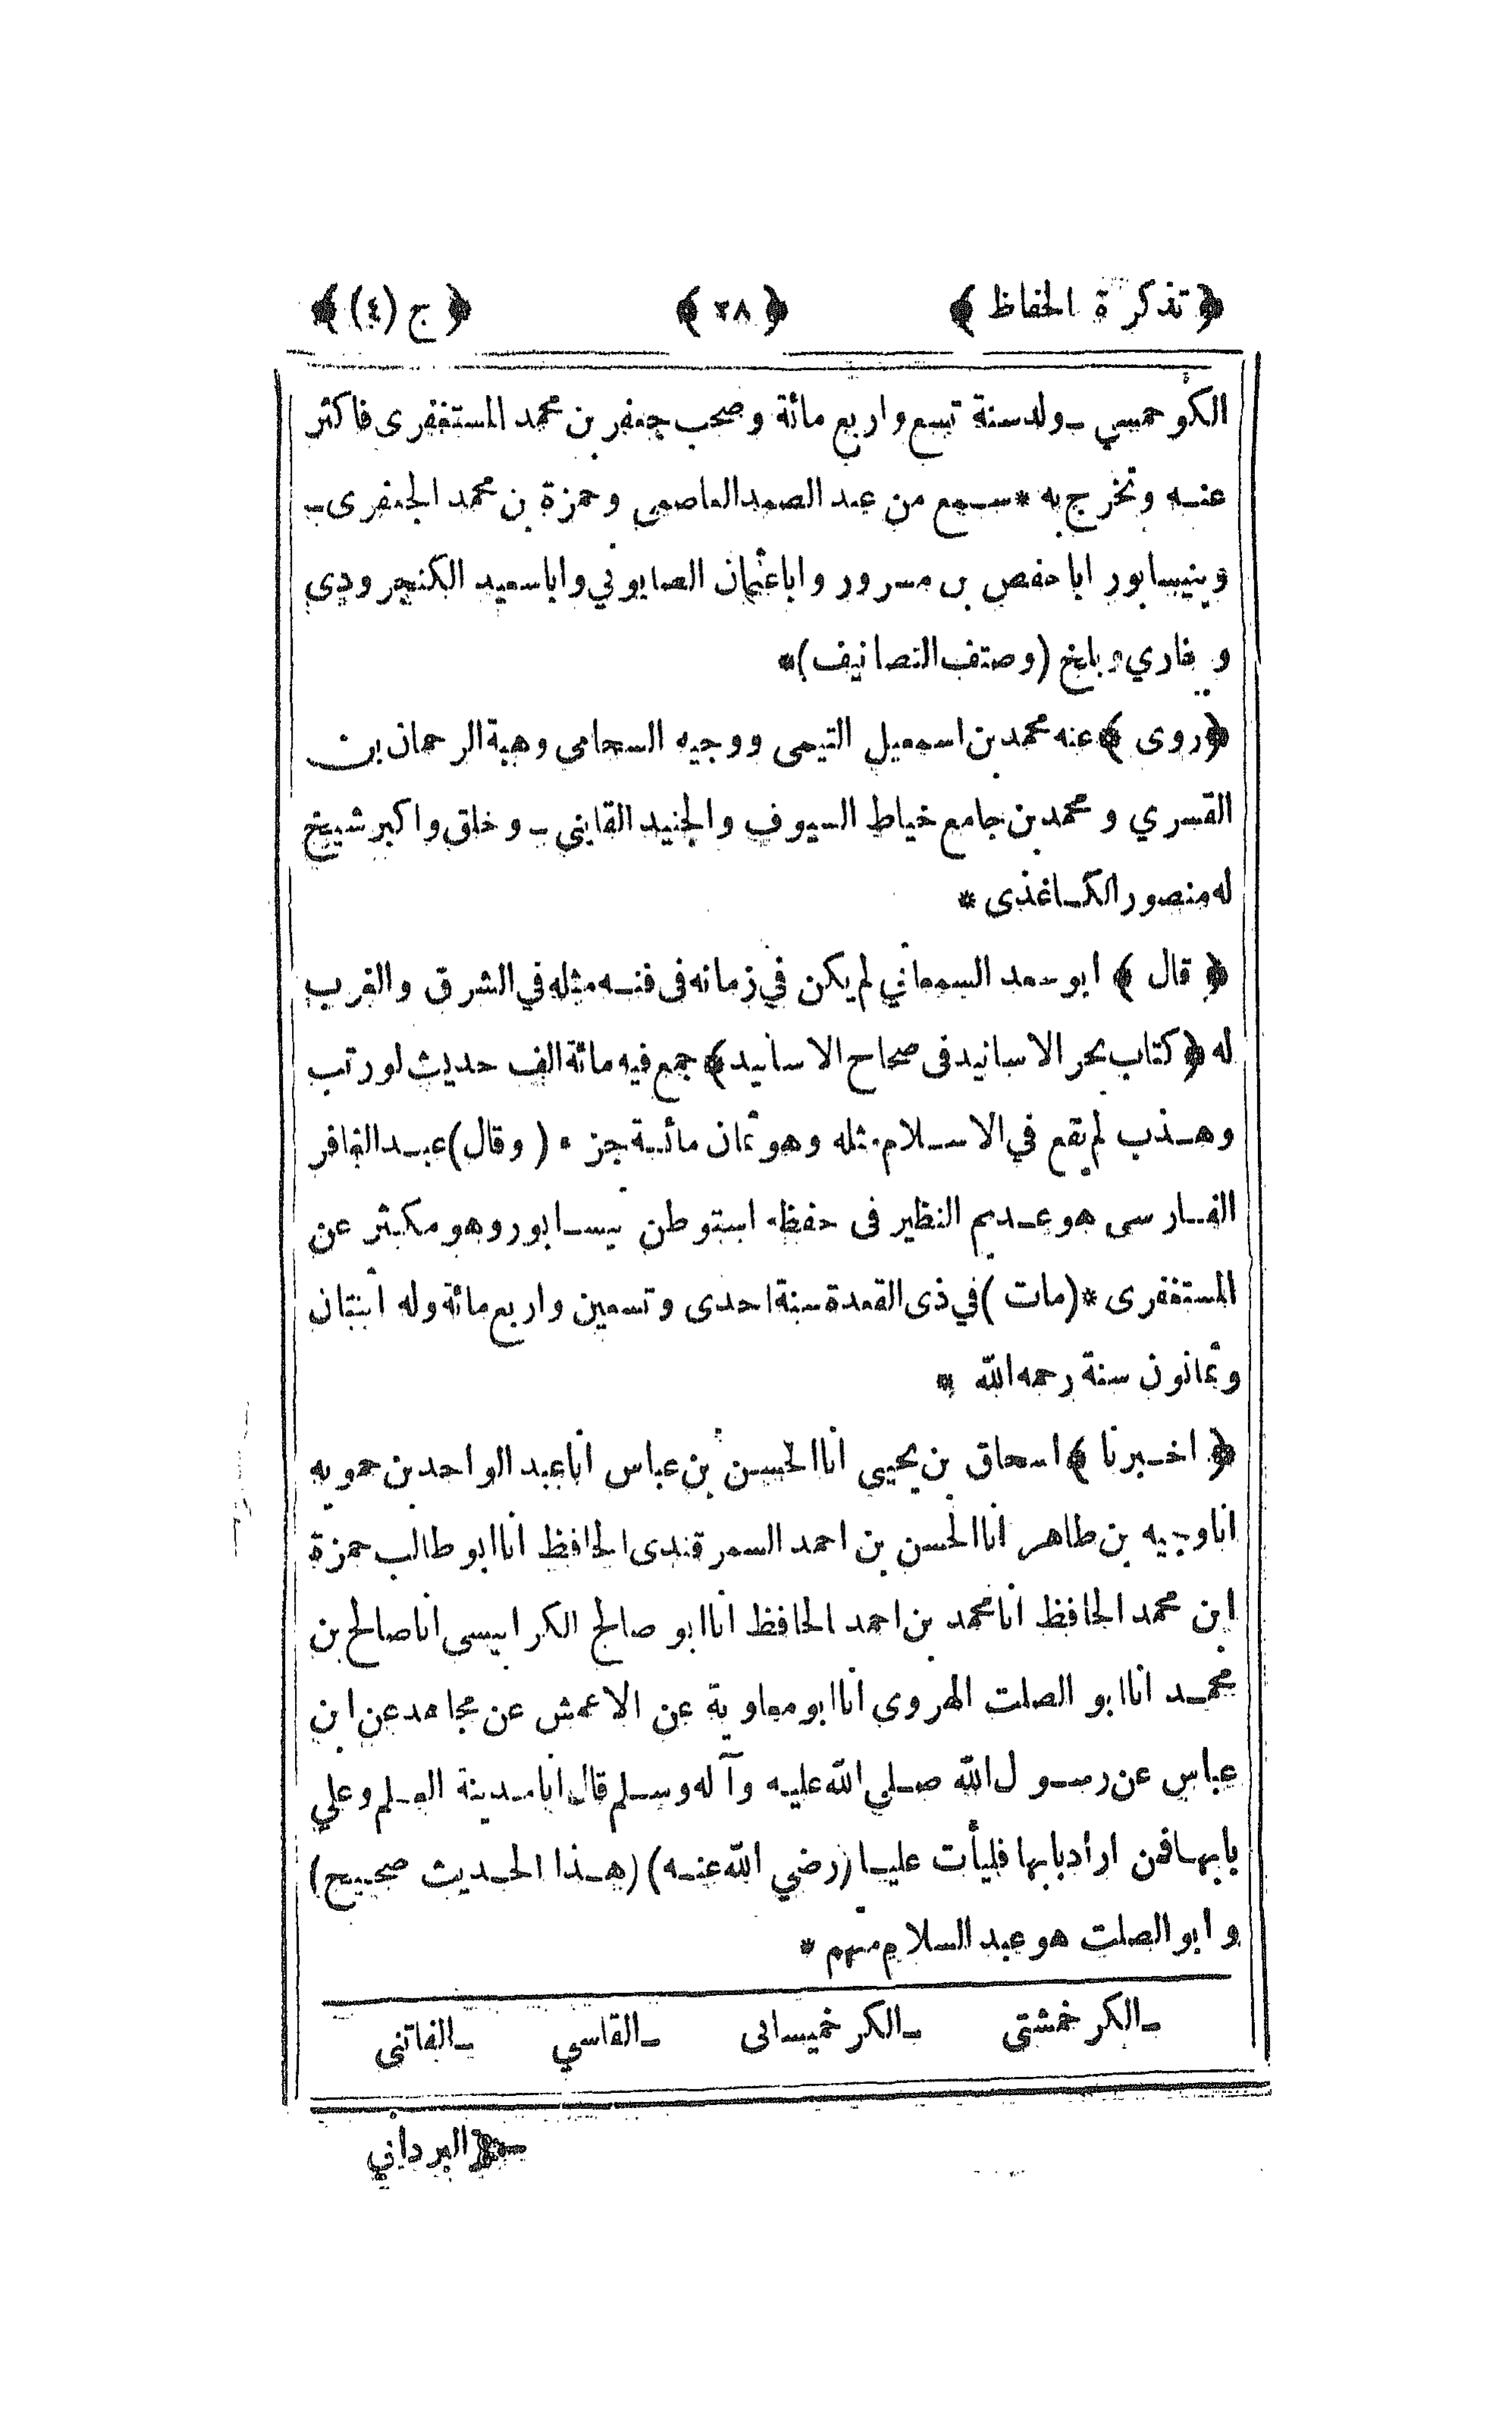 ﴿ تذكرة الحفاظ ﴾ ﴿ ٢٨ ﴾ ﴿ ج (٤) ﴾
الكوخميسي ـ ولد سنة تسع واربع مائة وصحب جعفر بن محمد المستغفرى فاكثر
عنه وتخرج به * سمع من عبد الصمد العاصمى وحمزة بن محمد الجعفرى ـ
وبنيسابور ابا حفص بن مسرور وابا عثمان الصابوني وابا سعيد الكنجرودى
وبخاري وبلخ (وصنف التصانيف) *
﴿ روى ﴾ عنه محمد بن اسمعيل التيمى ووجيه السحامى وهبة الرحمان بن
القسري ومحمد بن جامع خياط السيوف والجنيد القاينى ـ وخلق واكبر شيخ
له منصور الكاغذى *
﴿ قال ﴾ ابو سعد السمعاني لم يكن في زمانه فى فنه مثله في الشرق والغرب
له ﴿ كتاب بحر الاسانيد فى صحاح الاسانيد ﴾ جمع فيه مائة الف حديث لو رتب
وهذب لم يقع في الاسلام مثله وهو ثمان مائة جزء (وقال) عبد الغافر
الفارسى هو عديم النظير فى حفظه استوطن نيسابور وهو مكثر عن
المستغفرى * (مات) في ذى القعدة سنة احدى وتسعين واربع مائة وله اثنتان
وثمانون سنة رحمه الله *
﴿ اخبرنا ﴾ اسحاق بن يحيى انا الحسن بن عباس انا عبد الواحد بن حمويه
انا وجيه بن طاهر انا الحسن بن احمد السمرقندى الحافظ انا ابو طالب حمزة
ابن محمد الحافظ انا محمد بن احمد الحافظ انا ابو صالح الكرابيسى انا صالح بن
محمد انا ابو الصلت الهروي انا ابو معاوية عن الاعمش عن مجاهد عن ابن
عباس عن رسول الله صلى الله عليه وآله وسلم قال انا مدينة العلم وعلي
بابها فمن اراد بابها فليأت عليا (رضي الله عنه) (هذا الحديث صحيح)
وابو الصلت هو عبد السلام متهم *
ـ الكرخمشتى ـ الكرخميسانى ـ القاسي ـ الفاتنى
البرداني